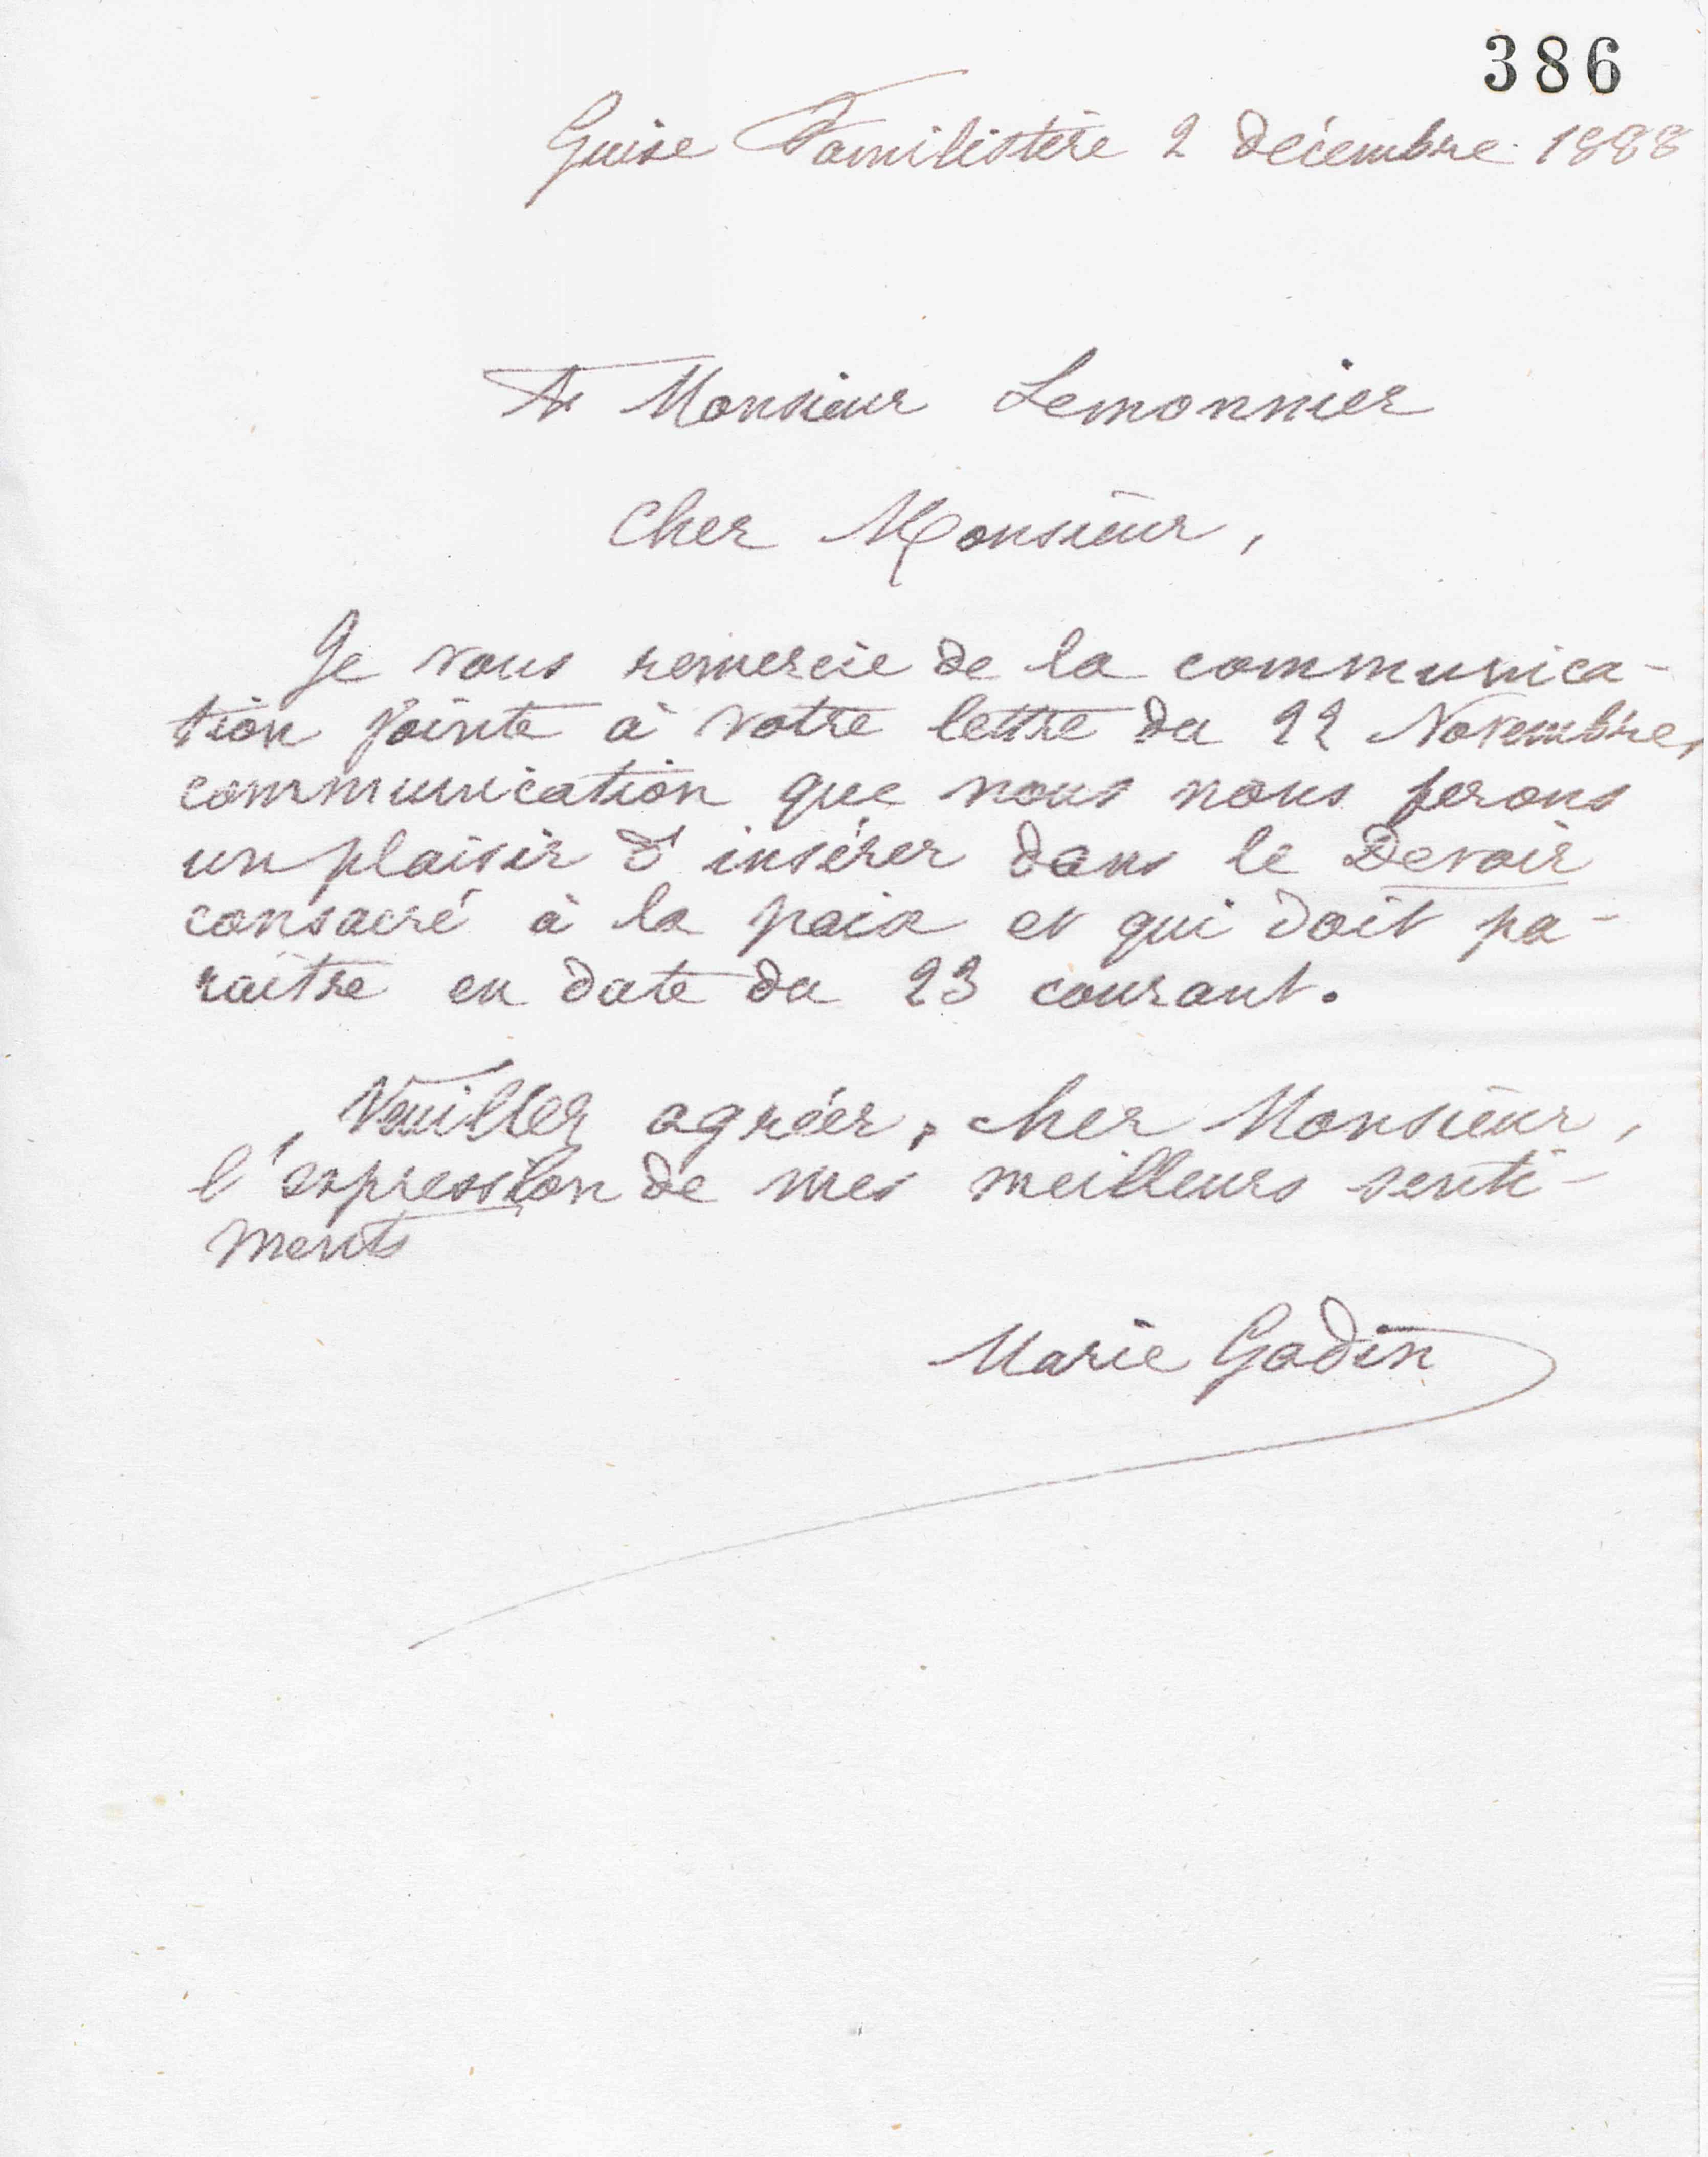 386
Guise Familistère 2 décembre 1888
A Monsieur Lemonnier
Cher Monsieur,
Je vous remercie de la communica-
tion jointe à votre lettre du 22 Novembre,
communication que nous nous ferons
un plaisir d'insérer dans le Devoir
consacré à la paix et qui doit pa-
raître en date du 23 courant.
Veuillez agréer, cher Monsieur,
l'expression de mes meilleurs senti-
ments
Marie Godin